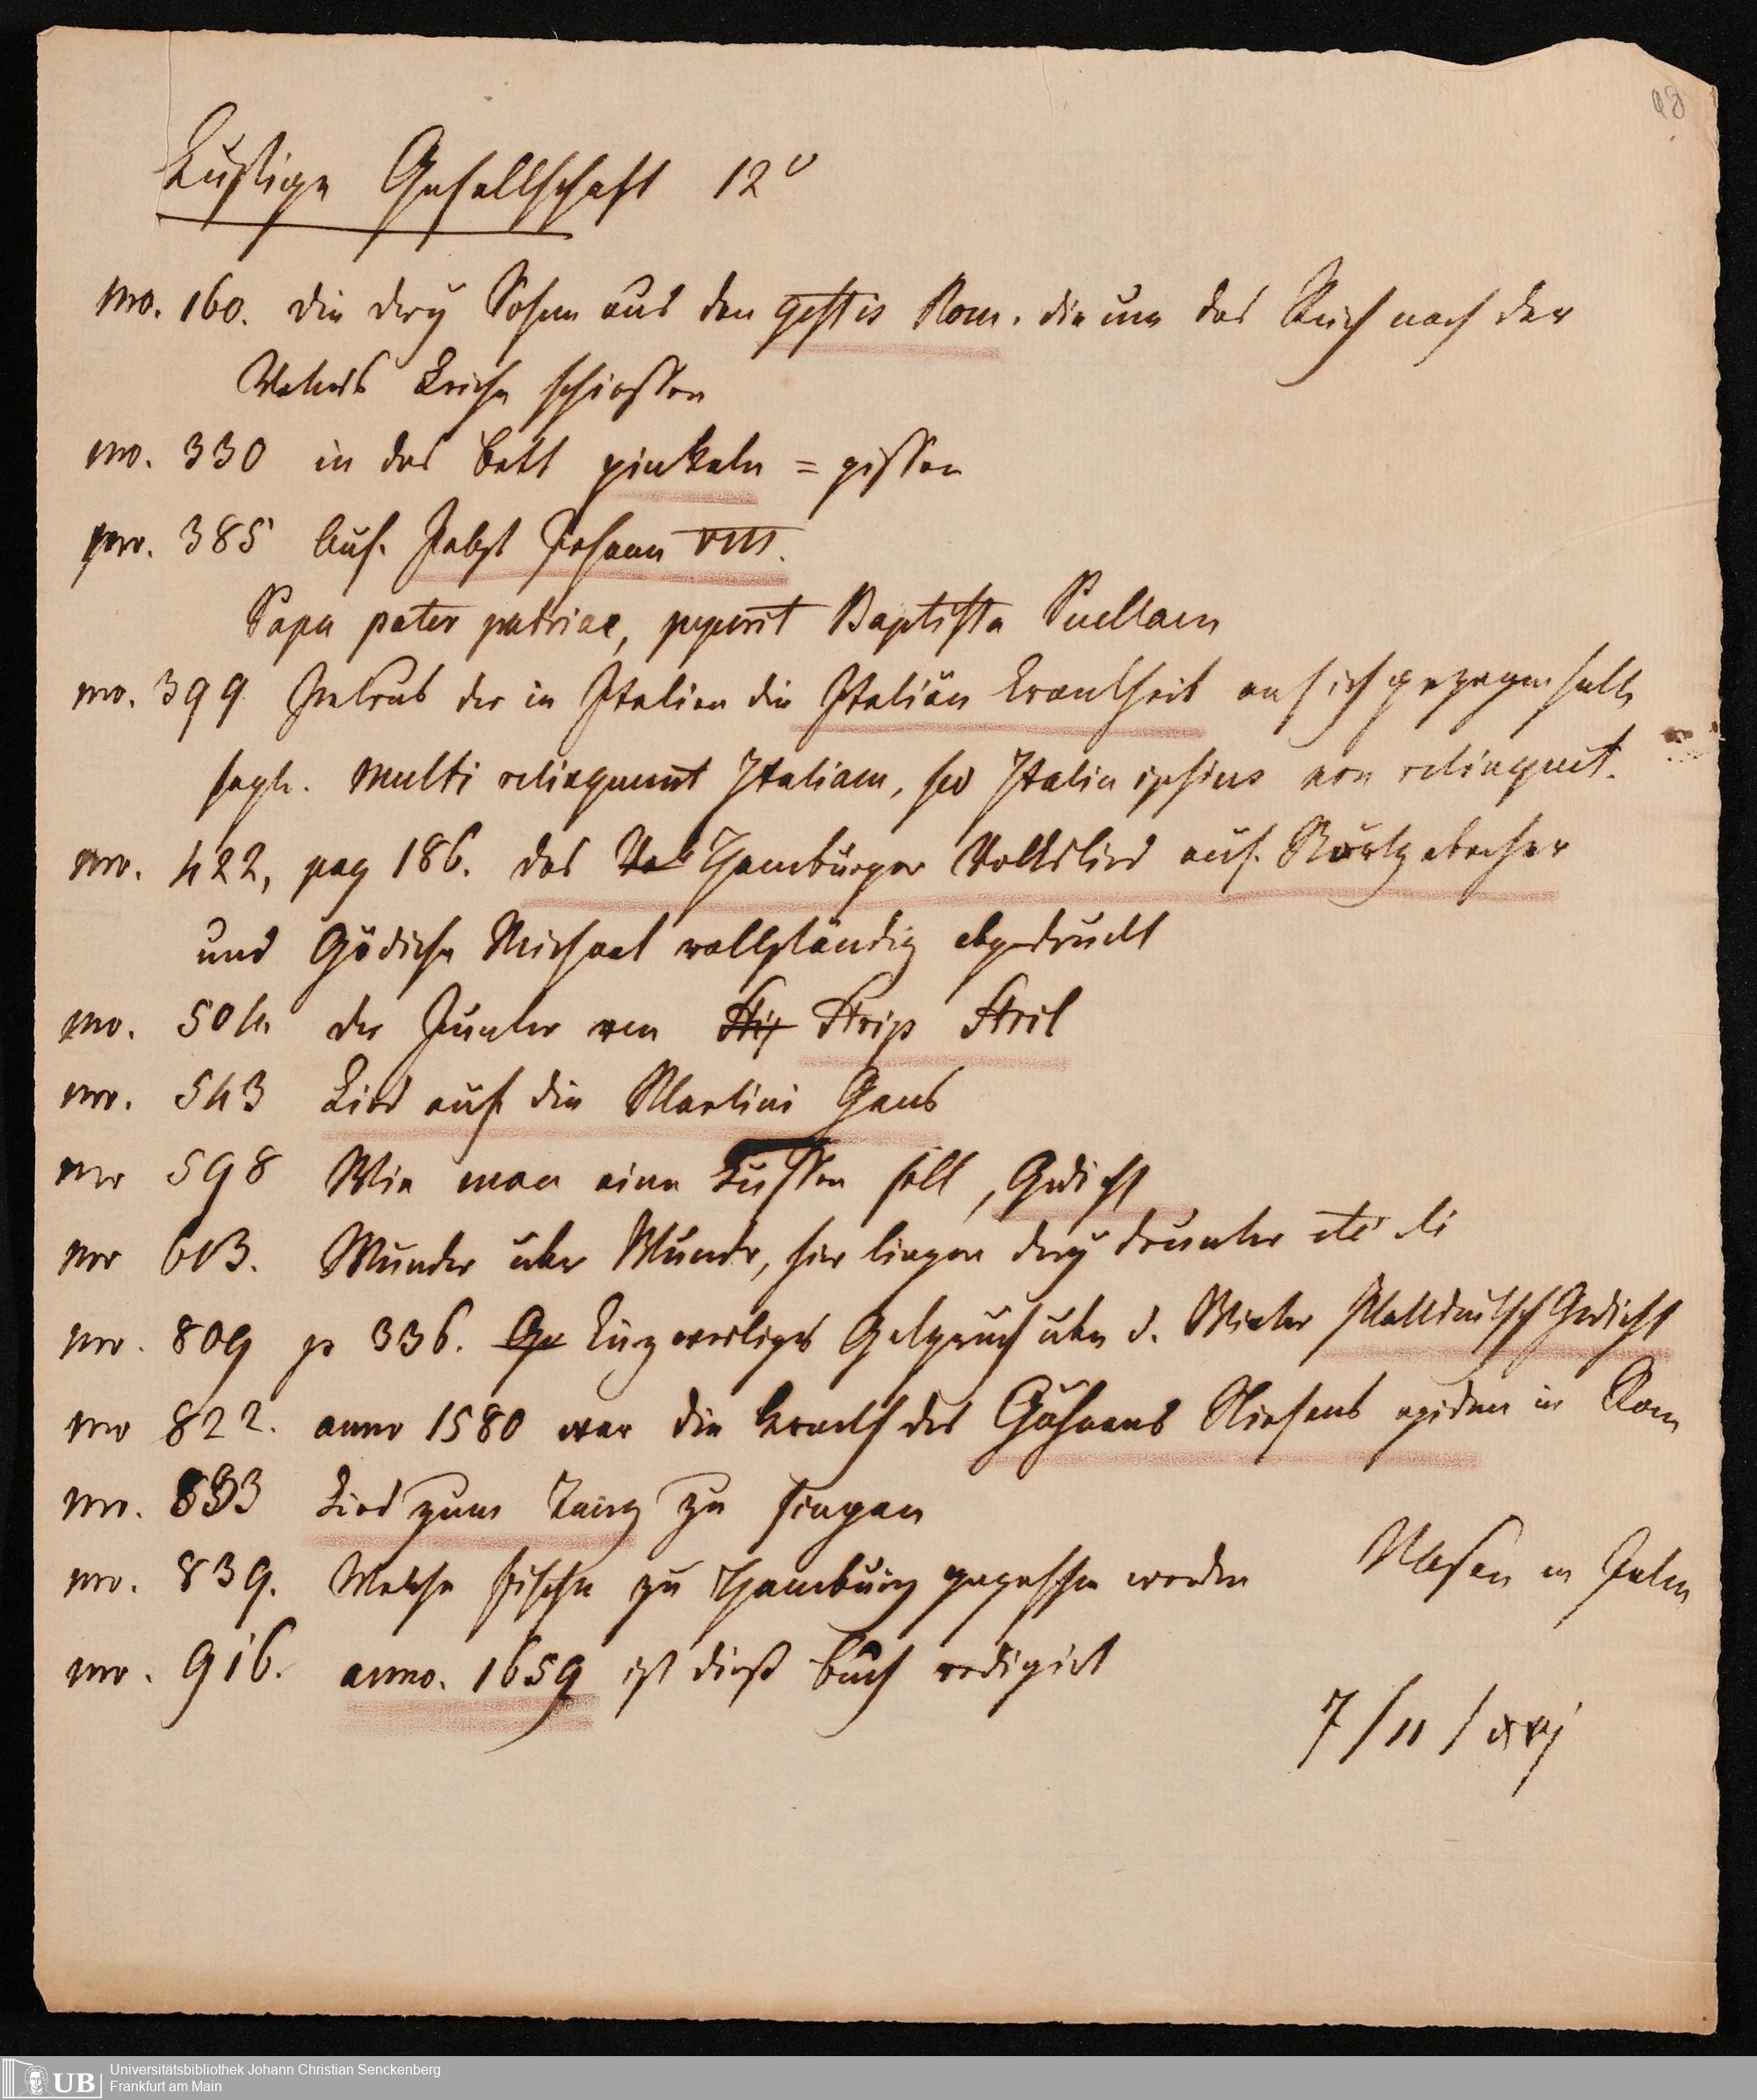 48
Lustige Gesellschaft 12°
no. 160. die drey Sohne aus den gestis Rom. die um das Reich nach der
Vaters Leiche schiessen
no. 330 in das Bett pinkeln = pissen
no. 385 Auf. Pabst Johann VIII.
Papa pater patriae, peperit Baptista Puellam
no. 399 Jemand der in Italien die Italiän Krankheit an sich gezogen hatte
sagte. Multi relinquunt Italiam, sed Italia ipsius non relinquit.
no. 422, pag 186. das Hamburger Volkslied auf. Störtzebecher
und Gödiche Michael vollständig abgedruckt
no. 504 der Junker von Strip Stril
no. 543 Lied auf die Martini Gans
no 598 Wie man eine Küssen soll, Gedicht
no 603. Wunder über Wunder, hier liegen drey drunter etc
no. 809 p 336. Kurzweiliges Gespräch über d. Winter Plattdeutsch Gedicht
no 822. anno 1580 war die Krankh des Gähnens Niesens epidem in Rom
no. 833 Lied zum Tanz zu singen
no. 839. Welche fische zu Hamburg gegessen werden
no. 916. anno. 1659 ist dieß Buch redigirt
7/11/xvj
Universitätsbibliothek Johann Christian Senckenberg
UB Frankfurt am Main